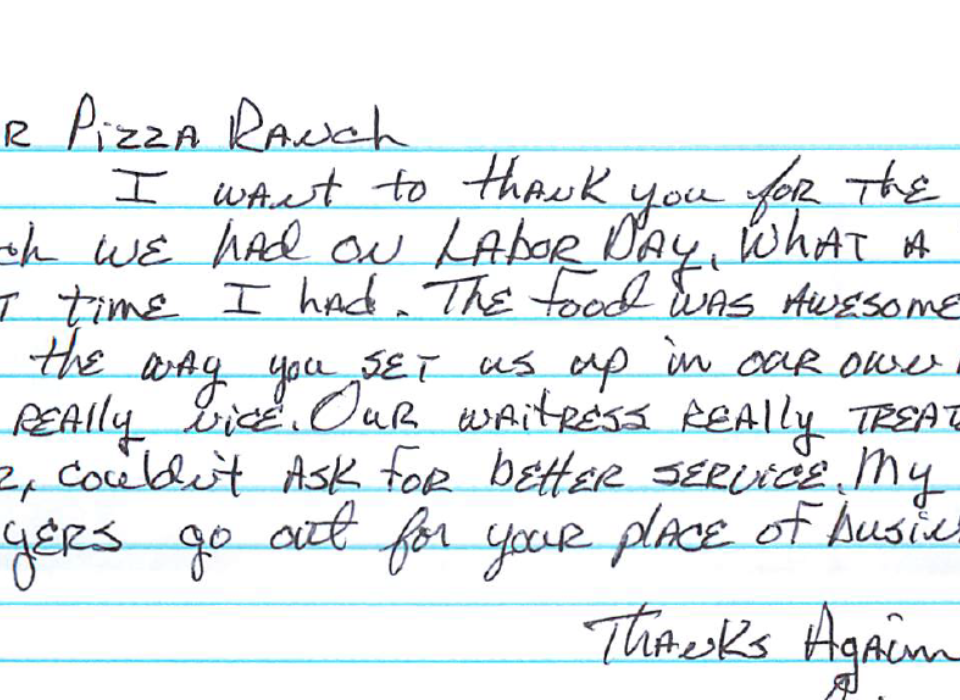 R Pizza Ranch
I want to thank you for the
ch we had on Labor Day. What a
T time I had. The food was awesome
the way you set us up in our own
really nice. Our waitress really treat
r, couldn't ask for better service. My
yers go out for your place of busin
Thanks Again